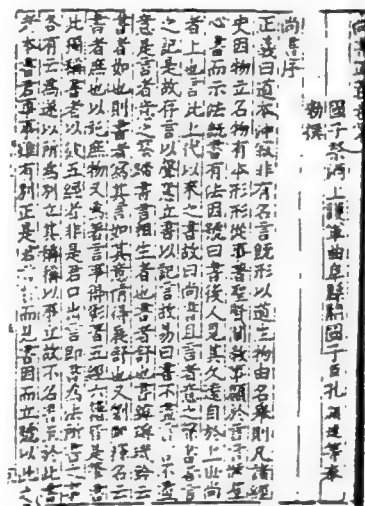 尚書正義
國子祭酒上護軍曲阜縣開國子臣孔穎達奉
勅撰
尚書序
正義曰道本沖寂非有名言既形以道生物由名舉則凡諸經
史因物立名物有本形形從事著聖賢闡教事顯於言言愜羣
心書而示法既書有法因號曰書後人見其久遠自於上世尚
者上也言此上代以來之書故曰尚書且言者意之聲書者言
之記是故存言以聲意立書以記言故易曰書不盡言言不盡
意是言者意之筌蹄書言相生者也書者舒也書緯璇璣鈐云
書者如也則書者寫其言如其意情得展舒也又劉熙釋名云
書者庶也以記庶物又為著言事得彰著五經六籍皆是筆書
此獨稱書者以彼五經者非是君口出言即書為法所書之事
各有云為遂以所為別立其稱稱以事立故不名書至於此書
者本書君事事雖有別正是君言言而見書因而立號以此之